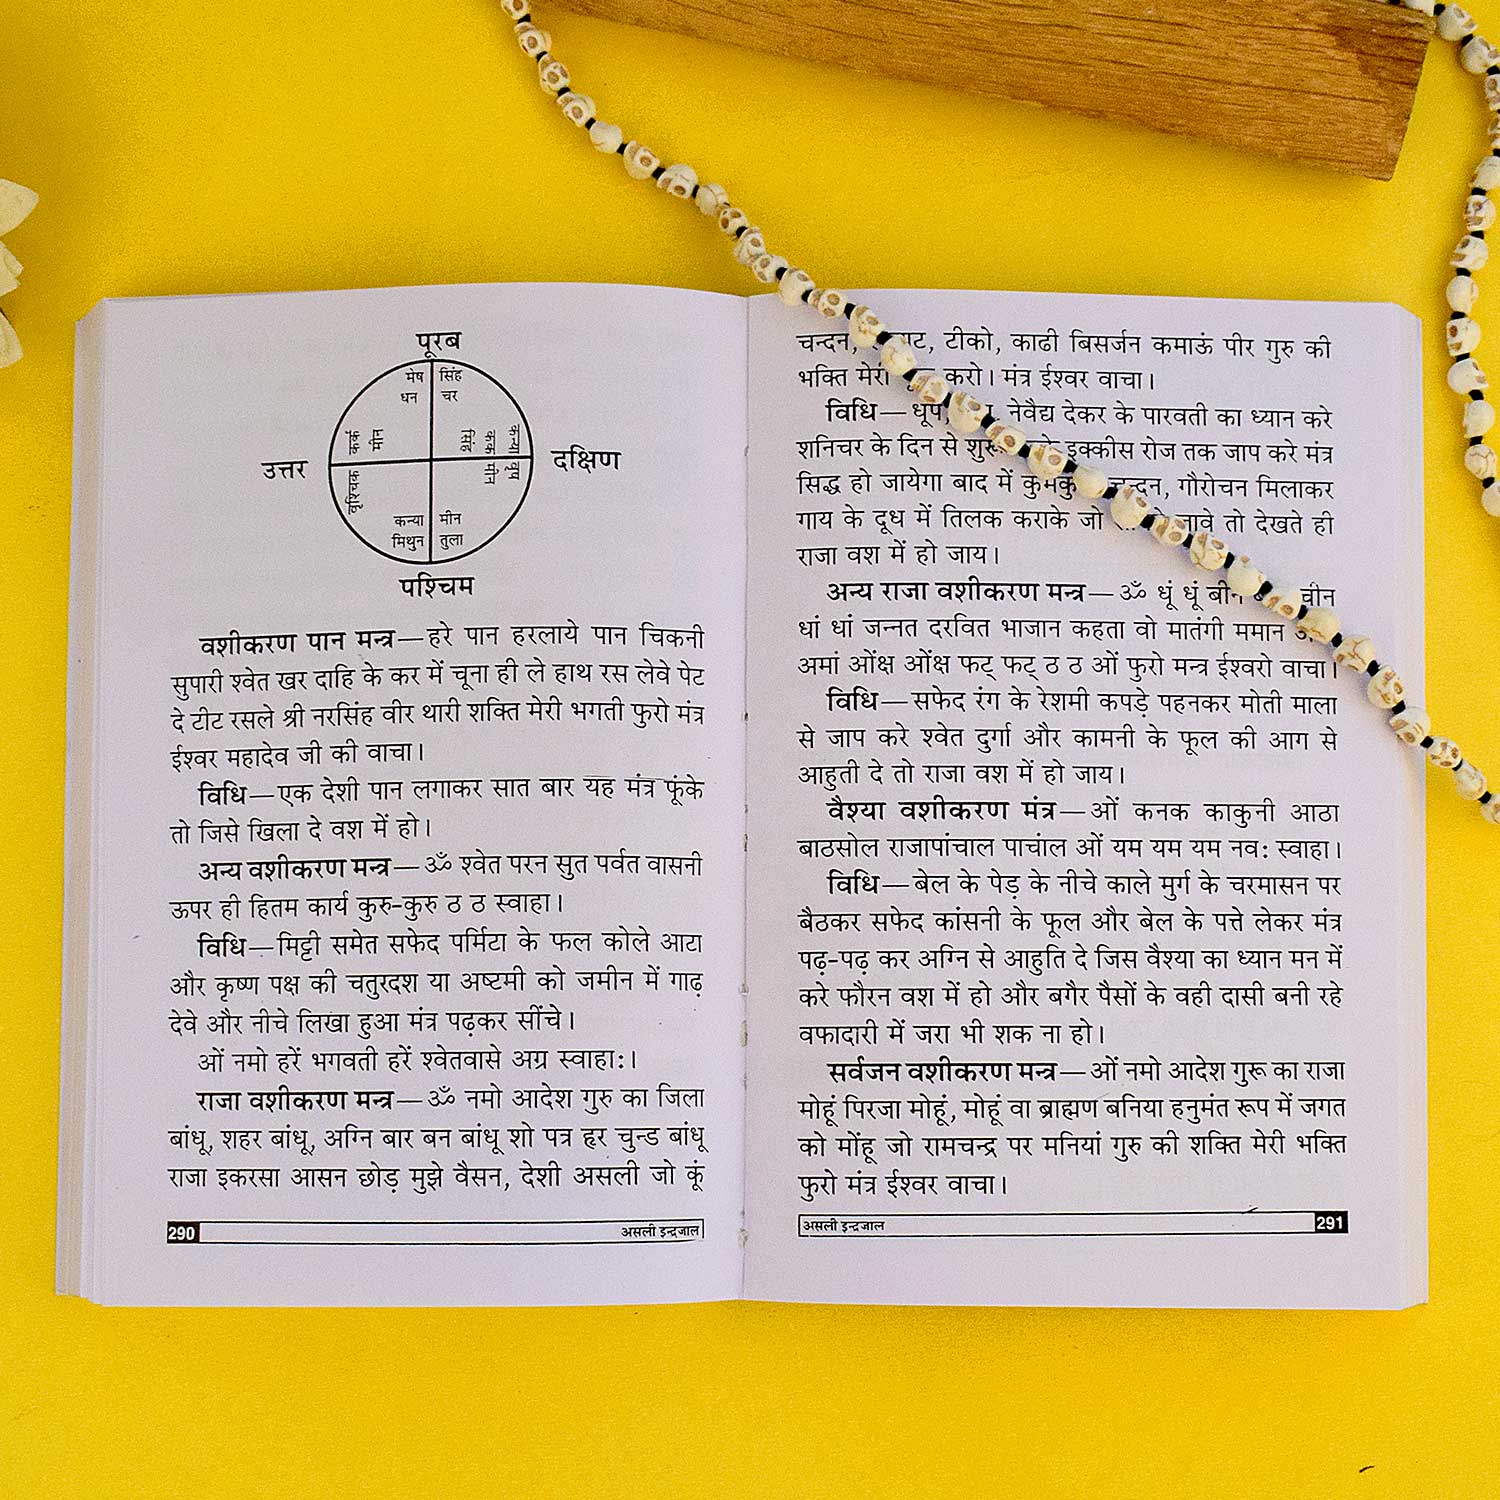 पूरब
मेष सिंह
धन चर
कर्क
मीन
कन्या
कर्क
सिंह
उत्तर
दक्षिण
वृश्चिक
वृष
मीन
कन्या मीन
मिथुन तुला
पश्चिम
वशीकरण पान मन्त्र—हरे पान हरलाये पान चिकनी
सुपारी श्वेत खर दाहि के कर में चूना ही ले हाथ रस लेवे पेट
दे टीट रसले श्री नरसिंह वीर थारी शक्ति मेरी भगती फुरो मंत्र
ईश्वर महादेव जी की वाचा।
विधि—एक देशी पान लगाकर सात बार यह मंत्र फूंके
तो जिसे खिला दे वश में हो।
अन्य वशीकरण मन्त्र—ॐ श्वेत परन सुत पर्वत वासनी
ऊपर ही हितम कार्य कुरु-कुरु ठ ठ स्वाहा।
विधि—मिट्टी समेत सफेद पर्मिटा के फल कोले आटा
और कृष्ण पक्ष की चतुरदश या अष्टमी को जमीन में गाढ़
देवे और नीचे लिखा हुआ मंत्र पढ़कर सींचे।
ओं नमो हरें भगवती हरें श्वेतवासे अग्र स्वाहा:।
राजा वशीकरण मन्त्र—ॐ नमो आदेश गुरु का जिला
बांधू, शहर बांधू, अग्नि बार बन बांधू शो पत्र हृर चुन्ड बांधू
राजा इकरसा आसन छोड़ मुझे वैसन, देशी असली जो कूं
290 असली इन्द्रजाल
चन्दन, टीको, काढी बिसर्जन कमाऊं पीर गुरु की
भक्ति मेरी करो। मंत्र ईश्वर वाचा।
विधि—धूप, नेवैद्य देकर के पारवती का ध्यान करे
शनिचर के दिन से इक्कीस रोज तक जाप करे मंत्र
सिद्ध हो जायेगा बाद में चन्दन, गौरोचन मिलाकर
गाय के दूध में तिलक कराके जो जावे तो देखते ही
राजा वश में हो जाय।
अन्य राजा वशीकरण मन्त्र—ॐ धूं धूं चीन
धां धां जन्नत दरवित भाजान कहता वो मातंगी ममान
अमां ओंक्ष ओंक्ष फट् फट् ठ ठ ओं फुरो मन्त्र ईश्वरो वाचा।
विधि—सफेद रंग के रेशमी कपड़े पहनकर मोती माला
से जाप करे श्वेत दुर्गा और कामनी के फूल की आग से
आहुती दे तो राजा वश में हो जाय।
वैश्या वशीकरण मंत्र—ओं कनक काकुनी आठा
बाठसोल राजापांचाल पाचांल ओं यम यम यम नव: स्वाहा।
विधि—बेल के पेड़ के नीचे काले मुर्ग के चरमासन पर
बैठकर सफेद कांसनी के फूल और बेल के पत्ते लेकर मंत्र
पढ़-पढ़ कर अग्नि से आहुति दे जिस वैश्या का ध्यान मन में
करे फौरन वश में हो और बगैर पैसों के वही दासी बनी रहे
वफादारी में जरा भी शक ना हो।
सर्वजन वशीकरण मन्त्र—ओं नमो आदेश गुरू का राजा
मोहूं पिरजा मोहूं, मोहूं वा ब्राह्मण बनिया हनुमंत रूप में जगत
को मोंहू जो रामचन्द्र पर मनियां गुरु की शक्ति मेरी भक्ति
फुरो मंत्र ईश्वर वाचा।
असली इन्द्रजाल 291